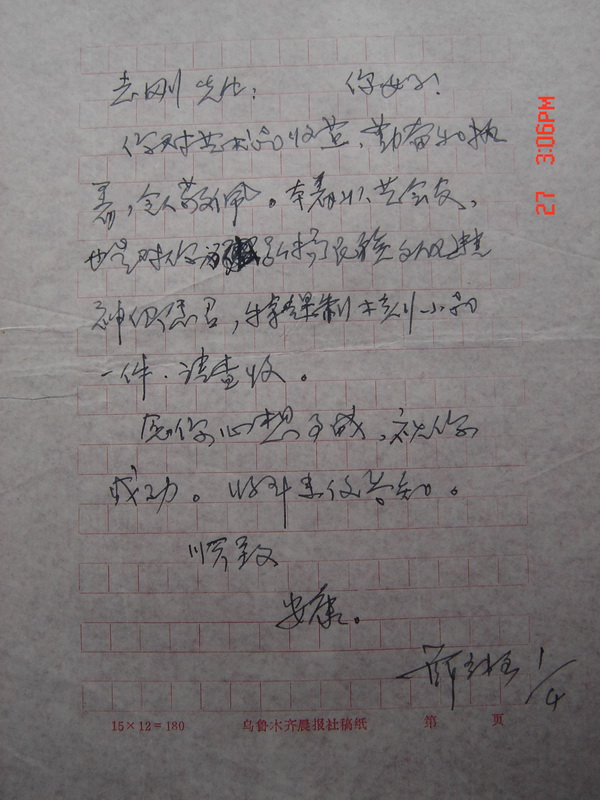 志刚先生： 你好！
你对艺术品收藏，勤奋和执
着，令人敬佩。本着以艺会友，
也是对你 民族文化精
神的 ，特 制木刻小品
一件，请查收。
愿你心想事成，祝你
成功。收到来信告知。
顺致
安康。
薛 1/4
15×12=180 乌鲁木齐晨报社稿纸 第 页
27 3:06PM